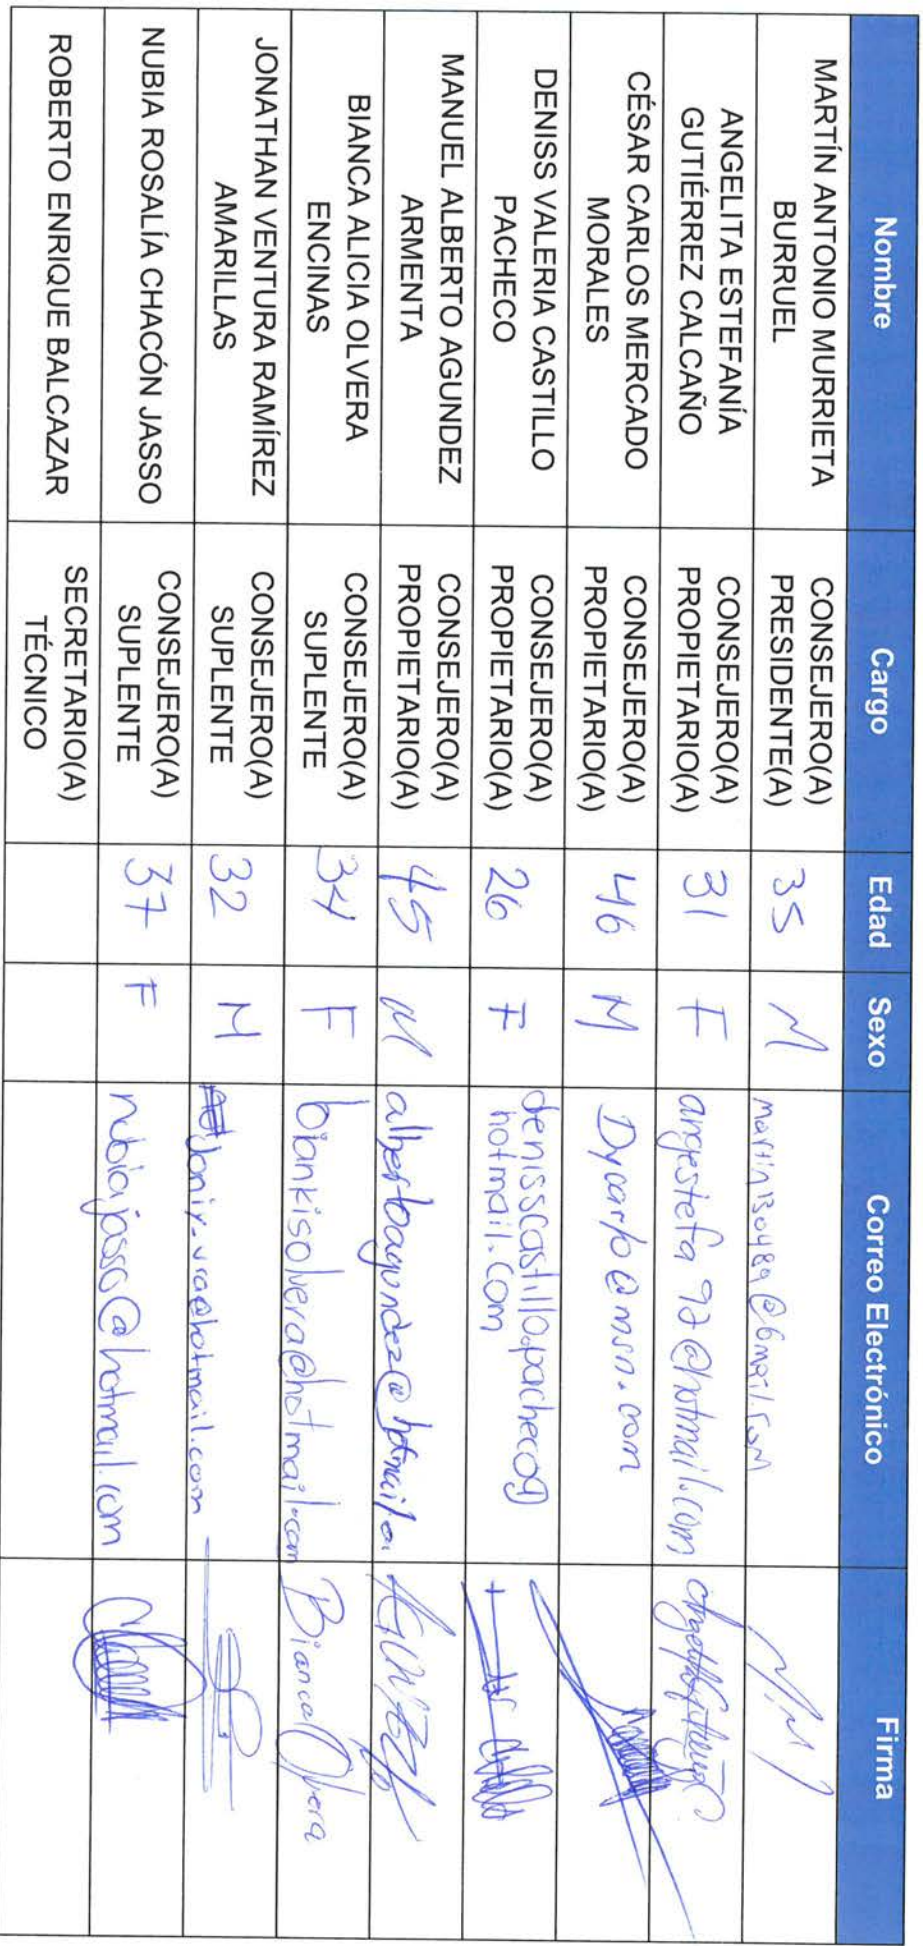 Nombre Cargo Edad Sexo Correo Electrónico Firma
MARTÍN ANTONIO MURRIETA
BURRUEL
CONSEJERO(A)
PRESIDENTE(A)
35 M martin130489@Gmail.com
ANGELITA ESTEFANÍA
GUTIÉRREZ CALCAÑO
CONSEJERO(A)
PROPIETARIO(A)
31 F angestefa92@hotmail.com
CÉSAR CARLOS MERCADO
MORALES
CONSEJERO(A)
PROPIETARIO(A)
46 M
DENISS VALERIA CASTILLO
PACHECO
CONSEJERO(A)
PROPIETARIO(A)
26 F denisscastillopacheco@
hotmail.com
MANUEL ALBERTO AGUNDEZ
ARMENTA
CONSEJERO(A)
PROPIETARIO(A)
45 M
BIANCA ALICIA OLVERA
ENCINAS
CONSEJERO(A)
SUPLENTE
34 F biankisolvera@hotmail.com Bianca Olvera
JONATHAN VENTURA RAMÍREZ
AMARILLAS
CONSEJERO(A)
SUPLENTE
32 M
NUBIA ROSALÍA CHACÓN JASSO
CONSEJERO(A)
SUPLENTE
37 F nubiajasso@hotmail.com
ROBERTO ENRIQUE BALCAZAR
SECRETARIO(A)
TÉCNICO